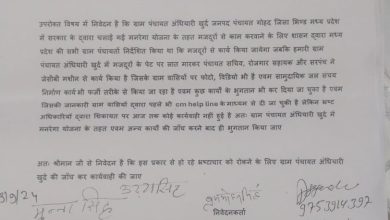 उपरोक्त विषय में निवेदन है कि ग्राम पंचायत अंधियारी खुर्द जनपद पंचायत गोहद जिला भिण्ड मध्य प्रदेश
में सरकार के द्वारा चलाई गई मनरेगा योजना के तहत मजदूरों से काम करवाने के लिए शासन द्वारा मध्य
प्रदेश की सभी ग्राम पंचायतों निर्देशित किया था कि मजदूरों से कार्य किया जायेगा जबकि हमारी ग्राम
पंचायत अंधियारी खुर्द में मजदूरों के पेट पर लात मारकर पंचायत सचिव, रोजगार सहायक और सरपंच ने
जेसीबी मशीन से कार्य किया है जिसके ग्राम वासियों पर फोटो, विडियो भी है एवम सामुदायिक जल संचय
निर्माण कार्य भी फर्जी तरीके से किया जा रहा है एवम कुछ कार्यों के भुगतान भी कर दिया जा चुका है एवम
जिसकी जानकारी ग्राम वासियों द्वारा पहले भी cm help line के माध्यम से दी जा चुकी है लेकिन भ्रष्ट
अधिकारिओं द्वारा शिकायत पर आज तक कोई कार्यवाही नहीं हुई है अतः ग्राम पंचायत अंधियारी खुर्द में
मनरेगा योजना के तहत एवम अन्य कार्यों की जाँच करने बाद ही भुगतान किया जाए
अतः श्रीमान जी से निवेदन है कि इस प्रकार से हो रहे भ्रष्टाचार को रोकने के लिए ग्राम पंचायत अंधियारी
खुर्द की जाँच कर कार्यवाही की जाए
9/24
मुन्ना सिंह
उदयसिंह
9753914397
निवेदनकर्ता